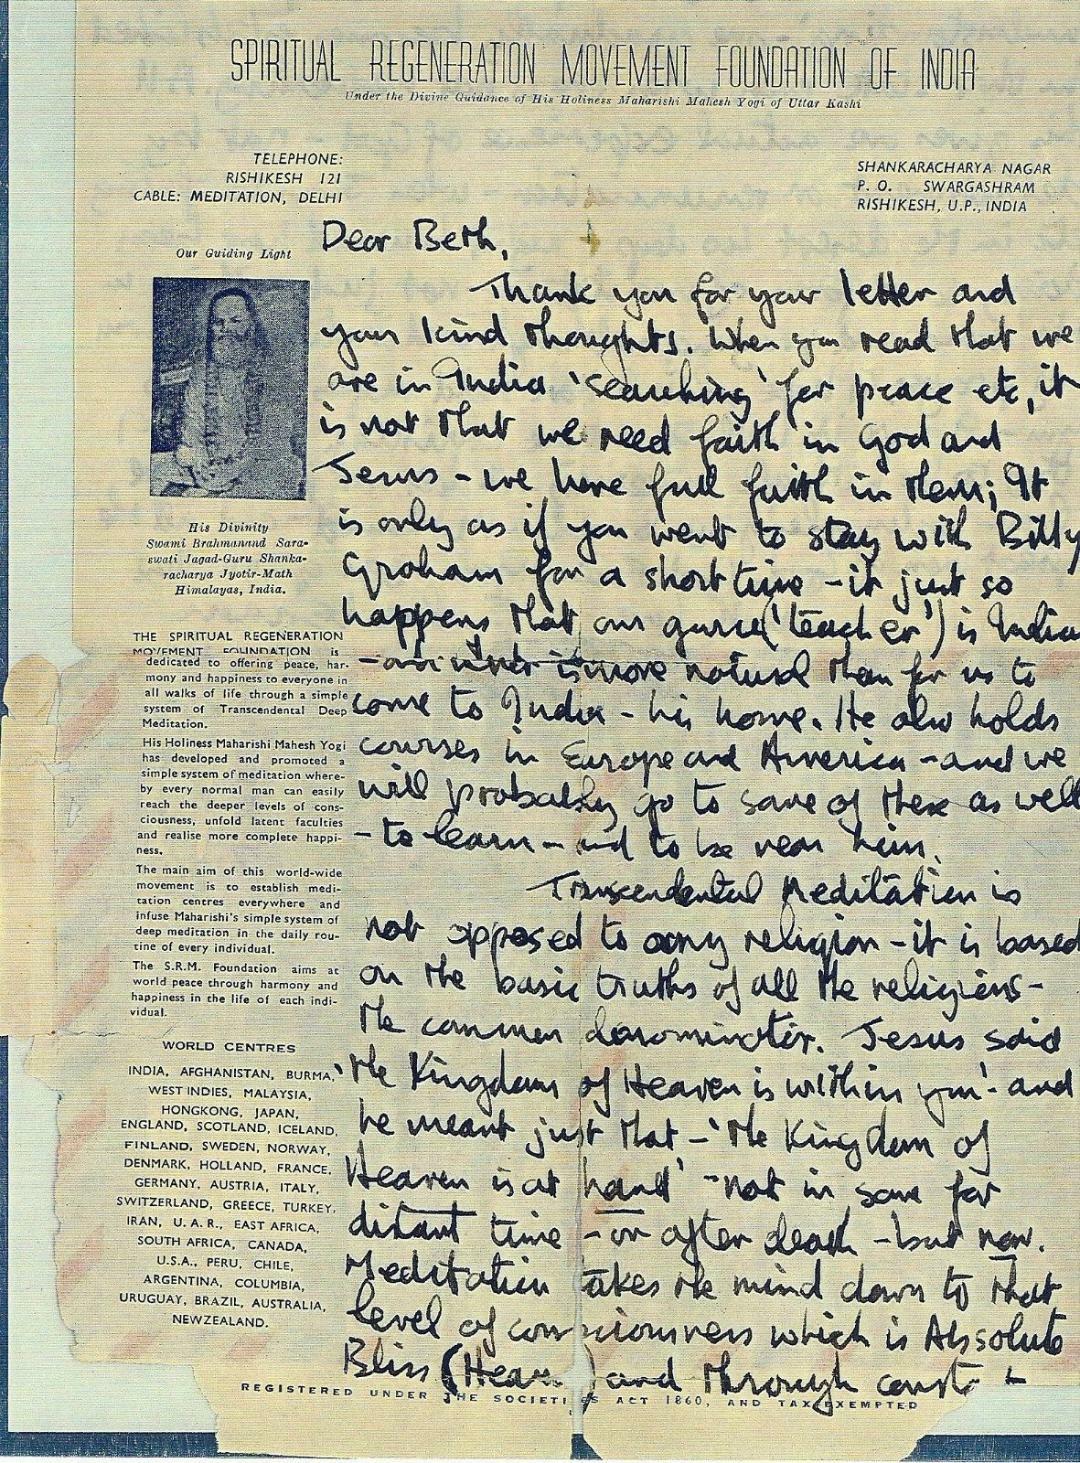 SPIRITUAL REGENERATION MOVEMENT FOUNDATION OF INDIA
Under the Divine Guidance of His Holiness Maharishi Mahesh Yogi of Uttar Kashi
TELEPHONE:
RISHIKESH 121
CABLE: MEDITATION, DELHI
SHANKARACHARYA NAGAR
P. O. SWARGASHRAM
RISHIKESH, U.P., INDIA
Our Guiding Light
His Divinity
Swami Brahmanand Sara-
swati Jagad-Guru Shanka-
racharya Jyotir-Math
Himalayas, India.
THE SPIRITUAL REGENERATION
MOVEMENT FOUNDATION is
dedicated to offering peace, har-
mony and happiness to everyone in
all walks of life through a simple
system of Transcendental Deep
Meditation.
His Holiness Maharishi Mahesh Yogi
has developed and promoted a
simple system of meditation where-
by every normal man can easily
reach the deeper levels of cons-
ciousness, unfold latent faculties
and realise more complete happi-
ness.
The main aim of this world-wide
movement is to establish medi-
tation centres everywhere and
infuse Maharishi's simple system of
deep meditation in the daily rou-
tine of every individual.
The S.R.M. Foundation aims at
world peace through harmony and
happiness in the life of each indi-
vidual.
WORLD CENTRES
INDIA, AFGHANISTAN, BURMA,
WEST INDIES, MALAYSIA,
HONGKONG, JAPAN,
ENGLAND, SCOTLAND, ICELAND,
FINLAND, SWEDEN, NORWAY,
DENMARK, HOLLAND, FRANCE,
GERMANY, AUSTRIA, ITALY,
SWITZERLAND, GREECE, TURKEY,
IRAN, U.A.R., EAST AFRICA,
SOUTH AFRICA, CANADA,
U.S.A., PERU, CHILE,
ARGENTINA, COLUMBIA,
URUGUAY, BRAZIL, AUSTRALIA,
NEWZEALAND.
Dear Beth,
Thank you for your letter and
your kind thoughts. When you read that we
are in India 'searching' for peace etc, it
is not that we need faith in God and
Jesus - we have full faith in them; It
is only as if you went to stay with Billy
Graham for a short time - it just so
happens that our guru ('teacher') is India
- and is more natural than for us to
come to India - his home. He also holds
courses in Europe and America - and we
will probably go to some of these as well
- to learn - and to be near him.
Transcendental Meditation is
not opposed to any religion - it is based
on the basic truths of all the religions -
the common denominator. Jesus said
'the Kingdom of Heaven is within you' - and
he meant just that - 'the Kingdom of
Heaven is at hand' - not in some far
distant time - or after death - but now.
Meditation takes the mind down to that
level of consciousness which is Absolute
Bliss (Heaven) and through
REGISTERED UNDER THE SOCIETIES ACT 1860, AND TAX EXEMPTED